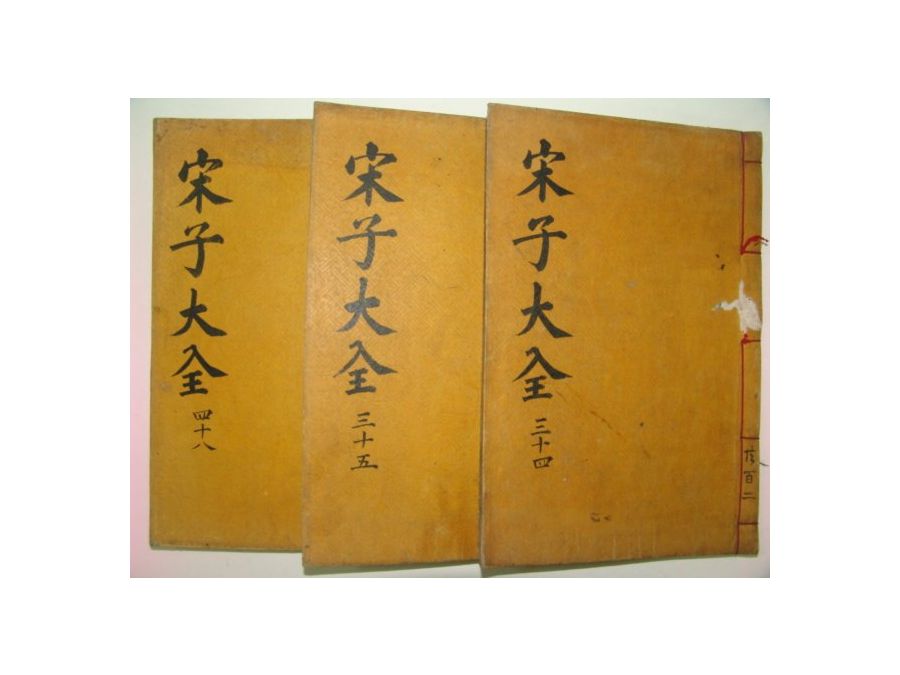 宋子大全
三十四
共百二
宋子大全
三十五
宋子大全
四十八